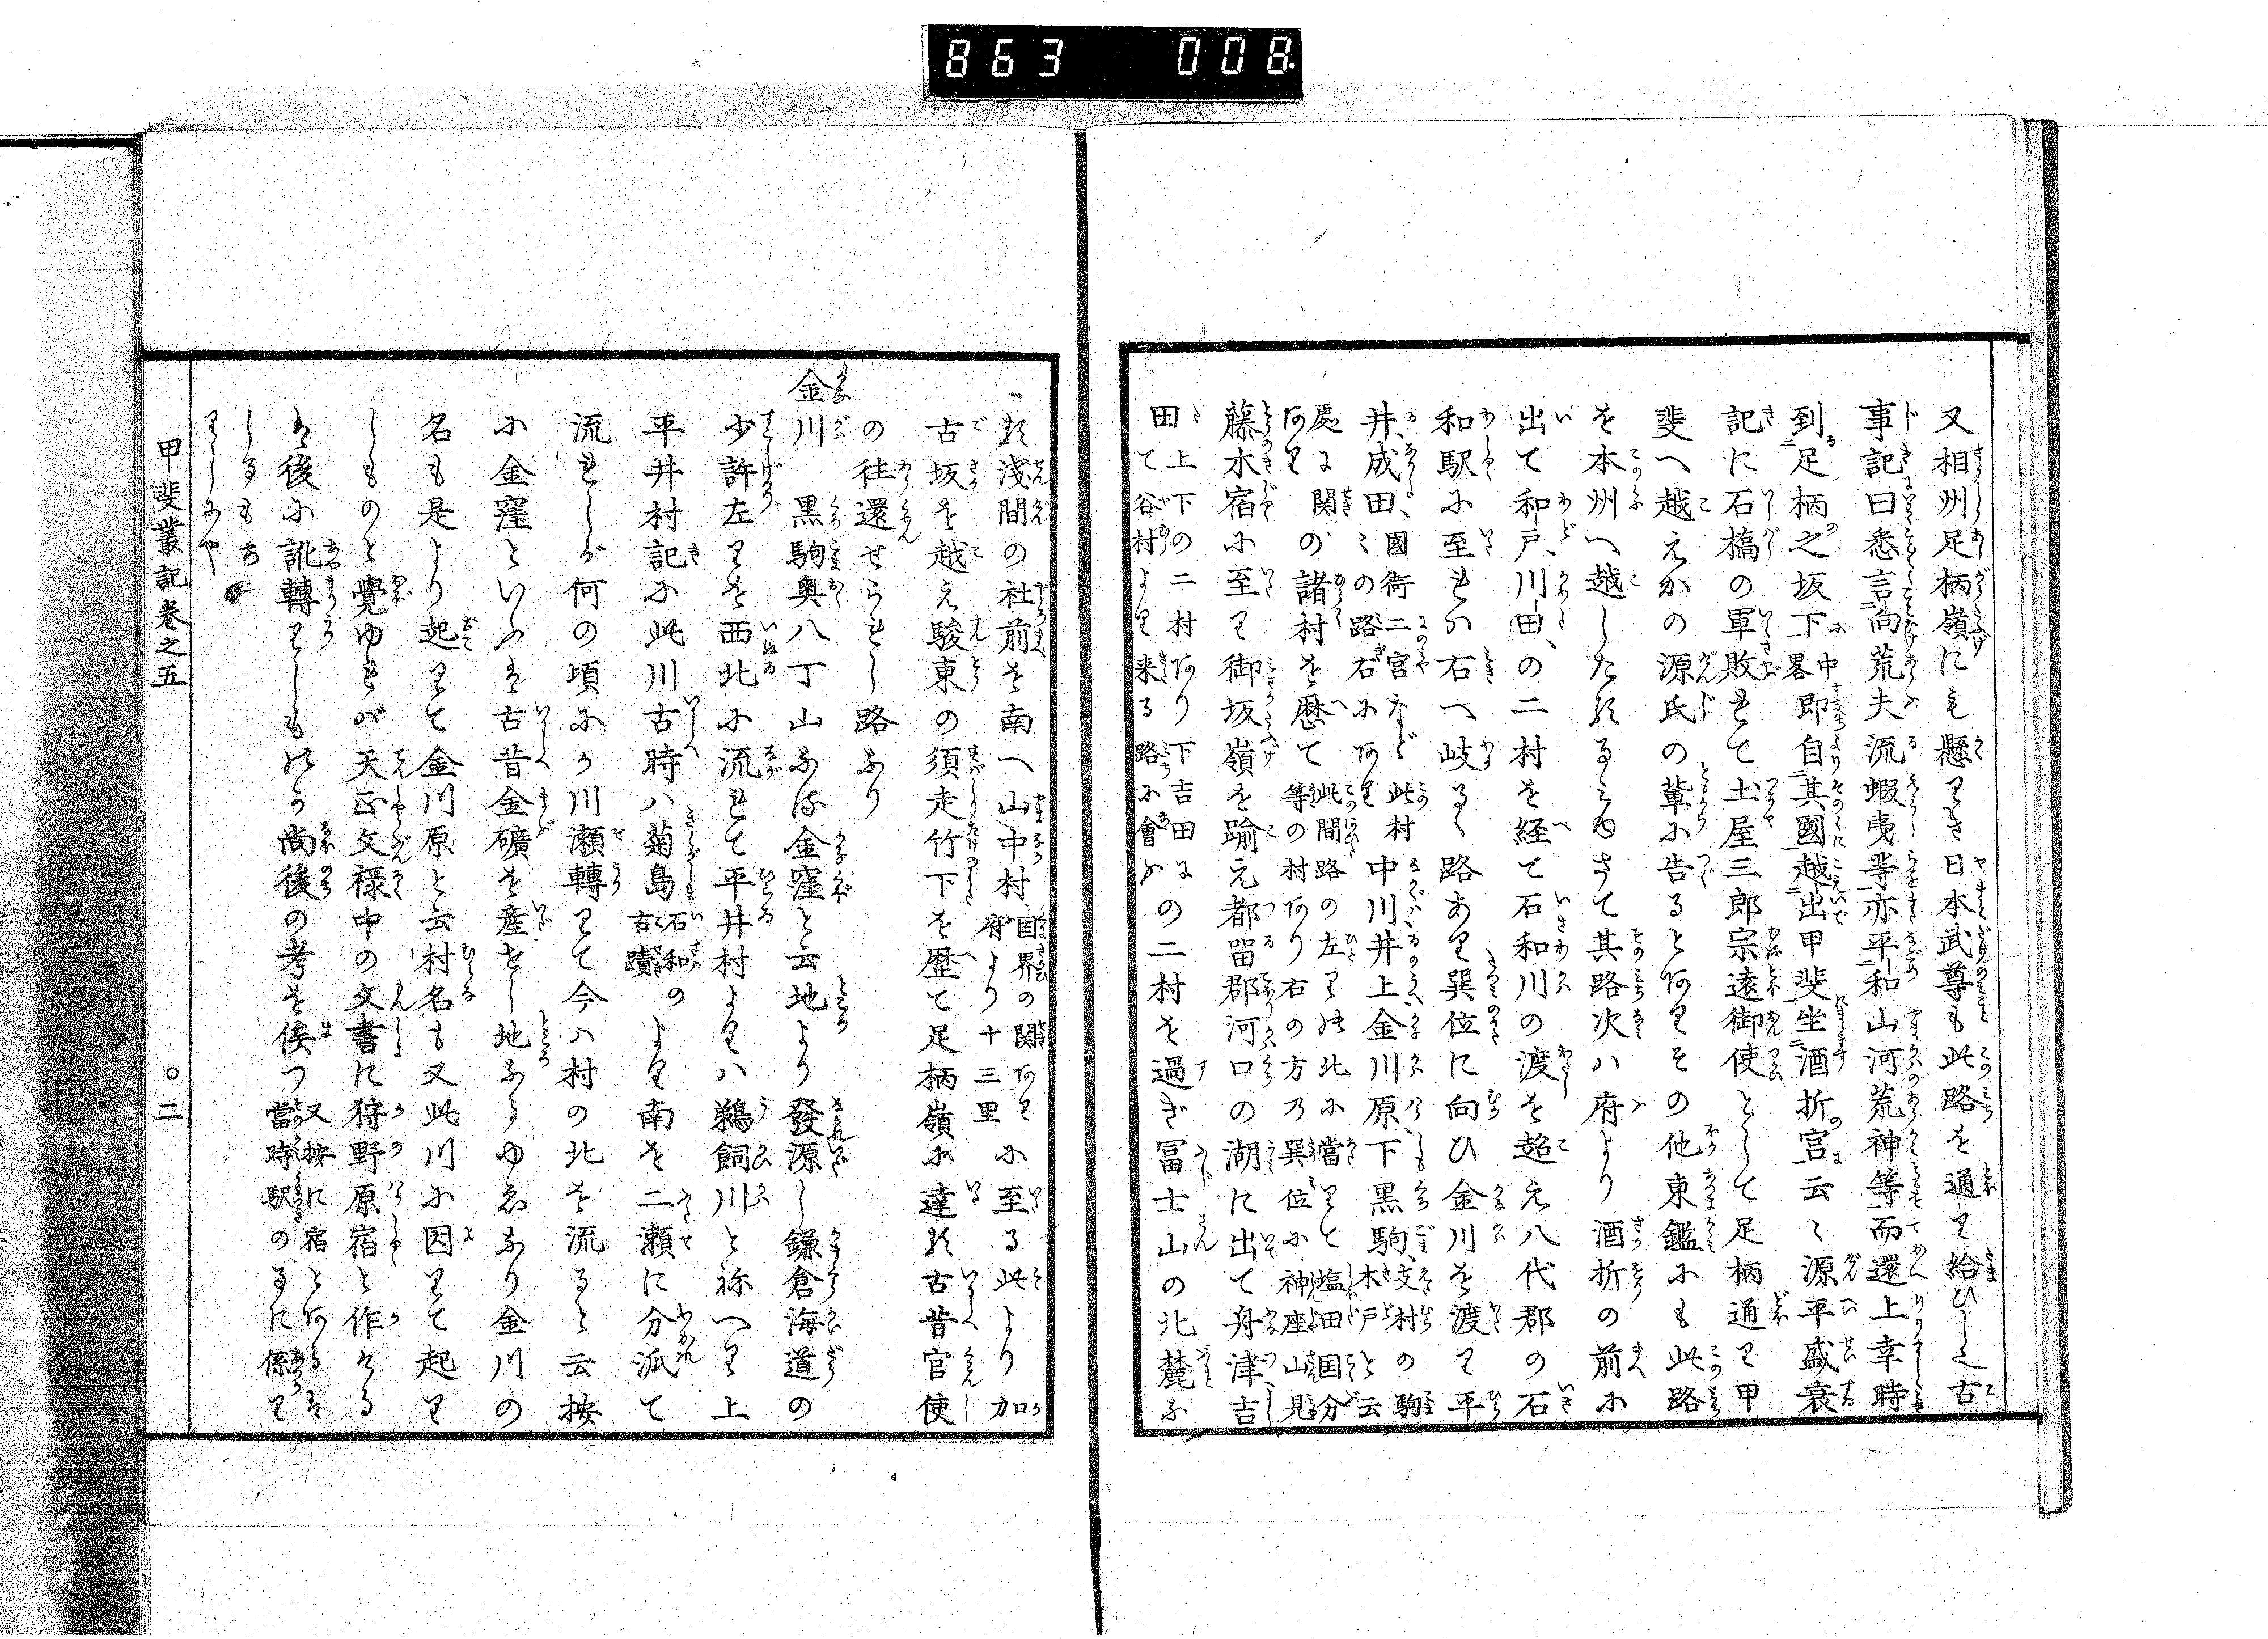 863 008.
又相州足柄嶺にも懸りき日本武尊も此路を通り給ひし之古
事記曰悉言向荒夫流蝦夷等亦平和山河荒神等而還上幸時
到足柄之坂下中畧即自其國越出甲斐坐酒折宮云〻源平盛衰
記に石橋の軍敗れて土屋三郎宗遠御使として足柄通り甲
斐へ越えかの源氏の輩に告るとありその他東鑑にも此路
を本州へ越したるさて其路次ハ府より酒折の前に
出て和戸、川田、の二村を経て石和川の渡を超え八代郡の石
和駅に至れハ石へ岐るゝ路あり巽位に向ひ金川を渡り平
井、成田、國衙二宮など此村〻の路右にあり中川井上金川原、下黒駒、支村の駒木戸と云
處に関の諸村を歴て此間路の左りの北に當りて塩田国分等の村あり右の方乃巽位に神座山見あり
藤木宿に至り御坂嶺を踰元都留郡河口の湖に出て舟津吉
田上下の二村あり下吉田にて谷村より来る路に會ふの二村を過ぎ冨士山の北麓な
る淺間の社前を南へ山中村国界の関あり府より十三里に至る此より加
古坂を越え駿東の須走竹下を歴て足柄嶺に達る古昔官使
の往還せられし路なり
金川 黒駒奥八丁山なる金窪と云地より發源し鎌倉海道の
少許左りを西北に流れて平井村よりハ鵜飼川と称へり上
平井村記に此川古時ハ菊島石和古蹟のより南を二瀬に分派て
流れしが何の頃にか川瀬轉りて今ハ村の北を流ると云按
に金窪といふは古昔金礦を産せし地なるゆゑなり金川の
名も是より起りて金川原と云村名も又此川に因りて起り
しものと覺ゆれバ天正文禄中の文書に狩野原宿と作くる
は後に訛轉りしものか尚後の考を俟つ又按に宿とあるは當時駅のるに係り
しるもあ
りしにや
甲斐叢記巻之五 〇二